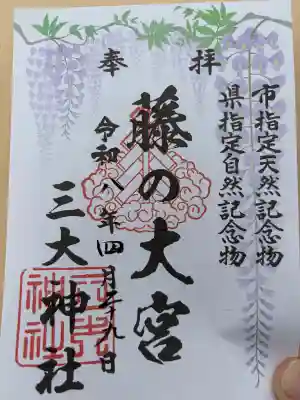 奉拝
市指定天然記念物
県指定自然記念物
藤の大宮
令和八年四月廿九日
三大神社